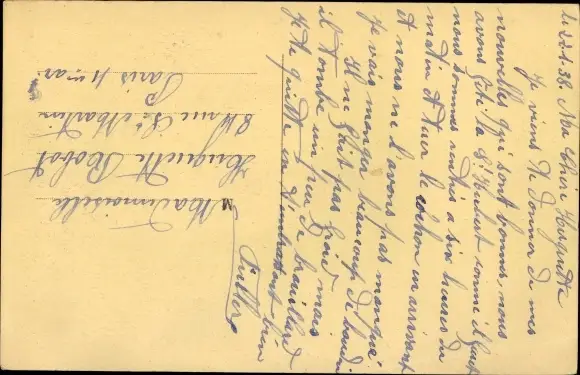 Le 22.1.38. Ma chère Huguette
Je viens te donner de mes
nouvelles qui sont bonnes, nous
avons fêté la St Hubert comme il faut
nous sommes rentrés a six heures du
matin et tuer le cochon en arrivant
et nous ne l'avons pas manqué
je vais manger beaucoup de boudin
Il ne fait pas froid mais
il tombe un peu de brouillard
Je te quitte en t'embrassant bien
Mademoiselle
Huguette Robot
rue St Martin
Paris 11 eme ar.